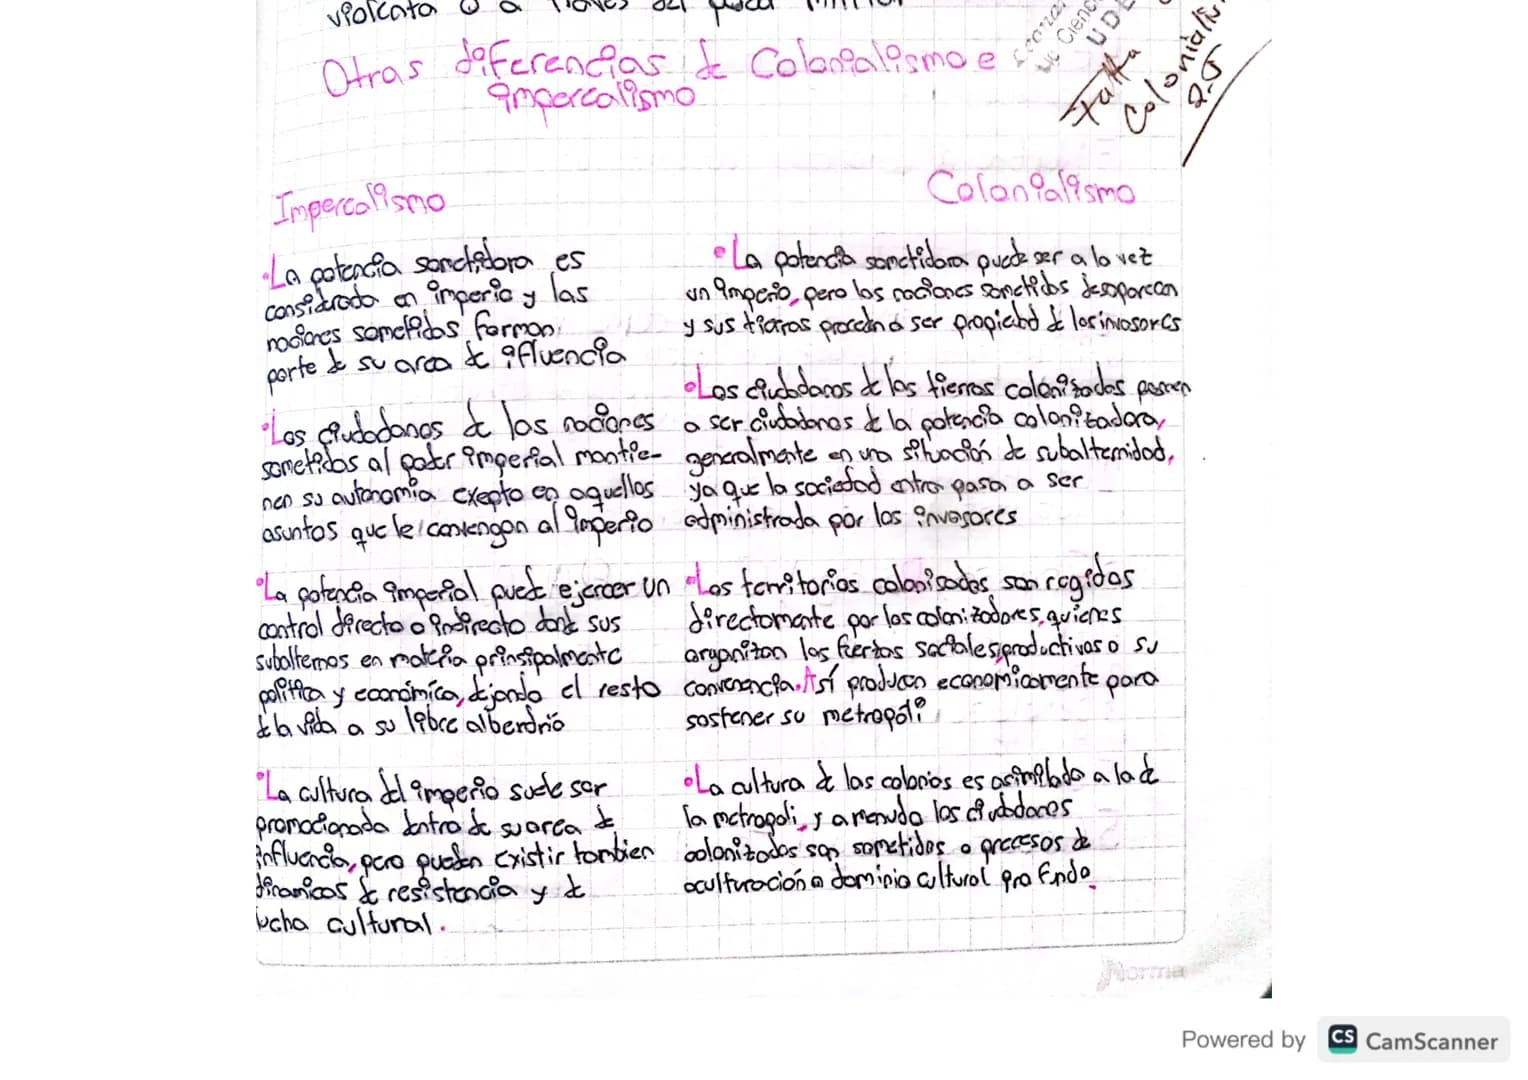 violenta o a través del poder
Otras diferencias de Colonialismo e
imperealismo
Falta
Colonialis
2.5
Imperealismo
•La potencia sometidora es
considerada en imperio y las
naciones sometidas forman
parte de su area de ifluencia
•Los ciudadanos de las naciones
sometidas al poder imperial mantie-
nen su autonomía exepto en aquellos
asuntos que le convengan al imperio
•La potencia imperial puede ejercer un
control directo o indirecto donde sus
subalternos en materia prinsipalmente
política y económica, dejando el resto
de la vida a su libre alberdrío
•La cultura del imperio suele ser
promocionada dentro de su area de
influencia, pero pueden existir tambien
dinamicas de resistencia y de
lucha cultural.
Colonialismo
•La potencia sometidora puede ser a la vez
un imperio, pero las naciones sometidas desaparcan
y sus tierras proceden a ser propiedad de los invasores
•Los ciudadanos de las tierras colonizadas pasan
a ser ciudadanos de la potencia colonizadora,
generalmente en una situación de subalternidad,
ya que la sociedad entra pasa a ser
administrada por los invasores
•Los territorios colonisados son regidos
directamente por los colonizadores, quienes
organizan las fuerzas sociales, productivas o su
conveniencia. Así producen economicamente para
sostener su metropoli
•La cultura de las colonias es asimilada a la de
la metropoli, y a menudo los ciudadanos
colonizados son sometidos a procesos de
aculturación o dominio cultural profundo.
Norma
Powered by CS CamScanner